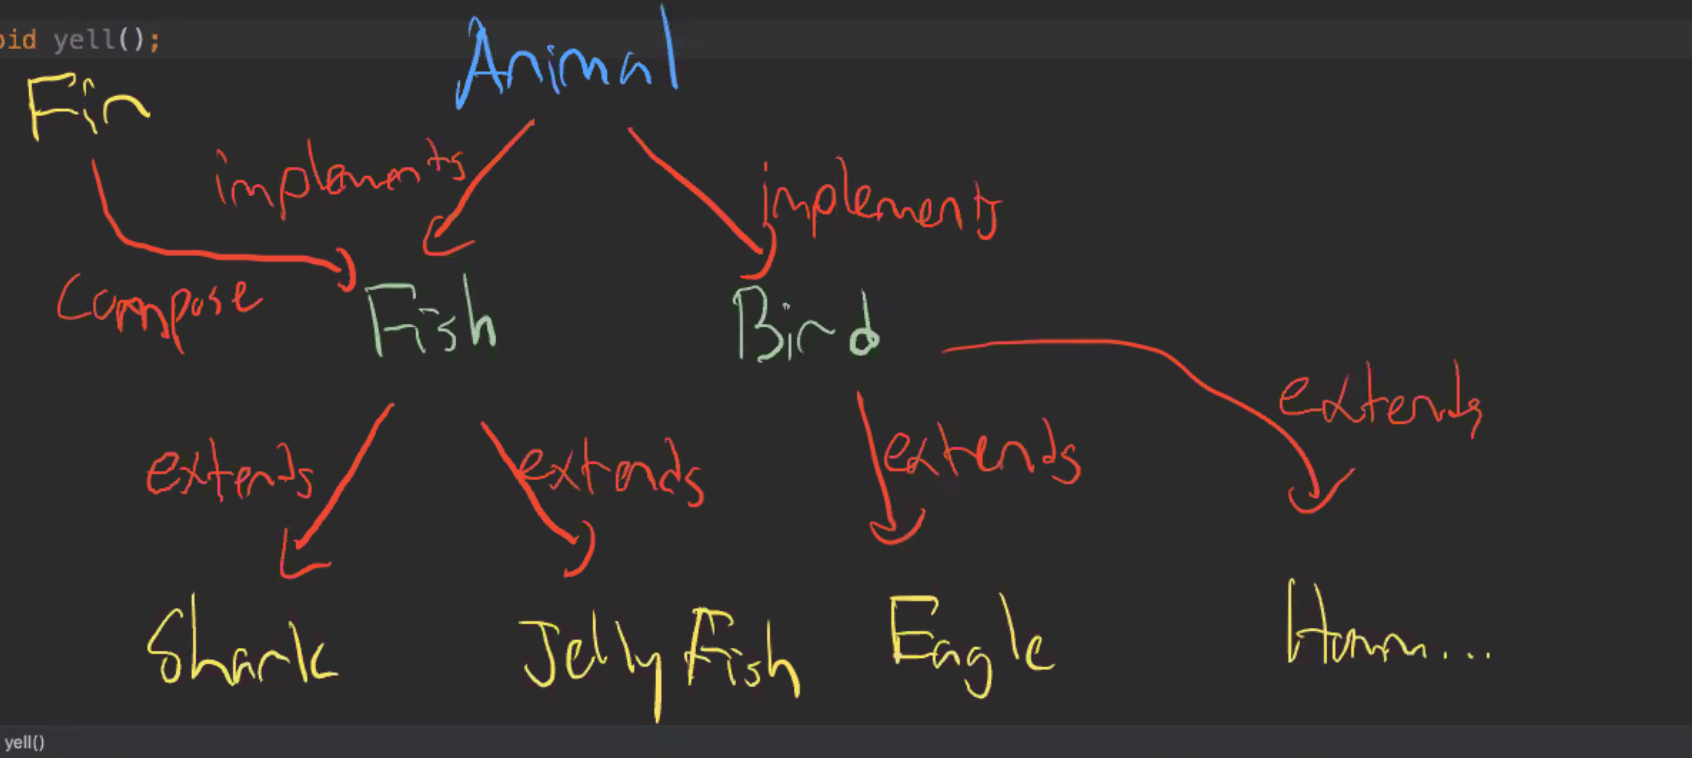 oid yell();
Animal
Fin
implements
implements
compose
Fish
Bird
extends
extends
extends
extends
Shark
Jelly Fish
Eagle
Humm...
yell()